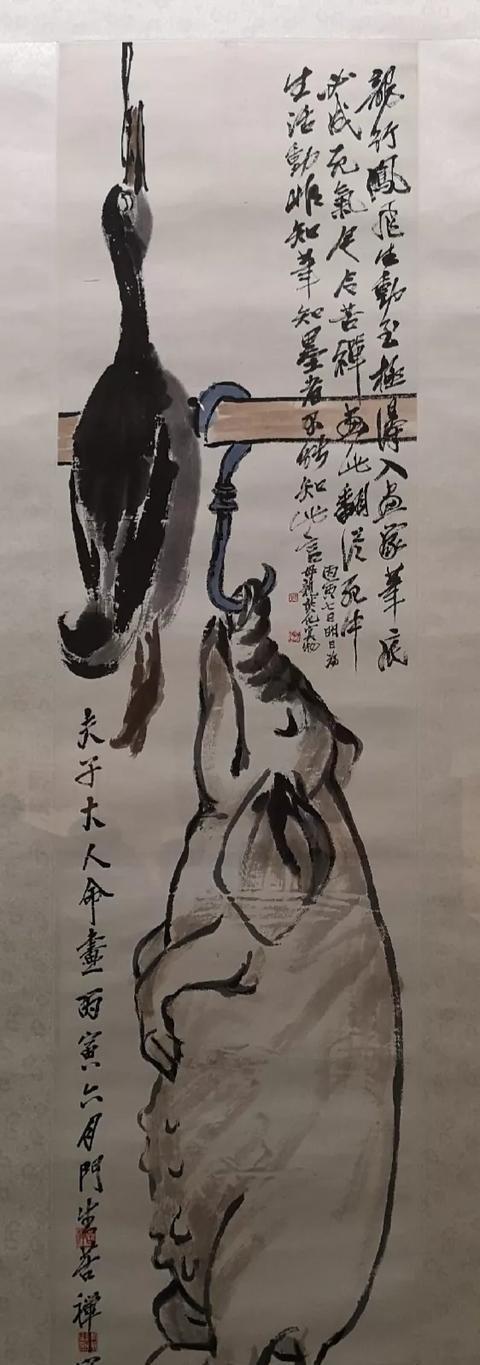 龍行鳳飛生動至極得入畫家筆底
必成死氣足今苦禪畫此翻從死中
生活動非知筆知墨者不能知此言
丙寅七日明日為
夫子大人命畫丙寅六月門生苦禪